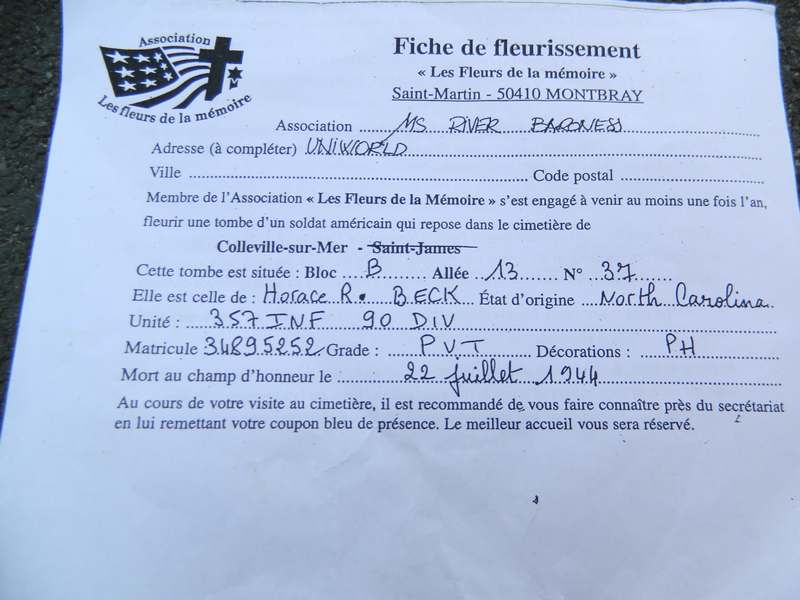 Association
Les fleurs de la mémoire
Fiche de fleurissement
« Les Fleurs de la mémoire »
Saint-Martin - 50410 MONTBRAY
Association MS RIVER BARONESS
Adresse (à compléter) UNIWORLD
Ville Code postal
Membre de l'Association « Les Fleurs de la Mémoire » s'est engagé à venir au moins une fois l'an,
fleurir une tombe d'un soldat américain qui repose dans le cimetière de
Colleville-sur-Mer - Saint-James
Cette tombe est située : Bloc B Allée 13 N° 37
Elle est celle de : Horace R. BECK État d'origine North Carolina
Unité : 357 INF 90 DIV
Matricule 34895252 Grade : PVT Décorations : PH
Mort au champ d'honneur le : 22 juillet 1944
Au cours de votre visite au cimetière, il est recommandé de vous faire connaître près du secrétariat
en lui remettant votre coupon bleu de présence. Le meilleur accueil vous sera réservé.